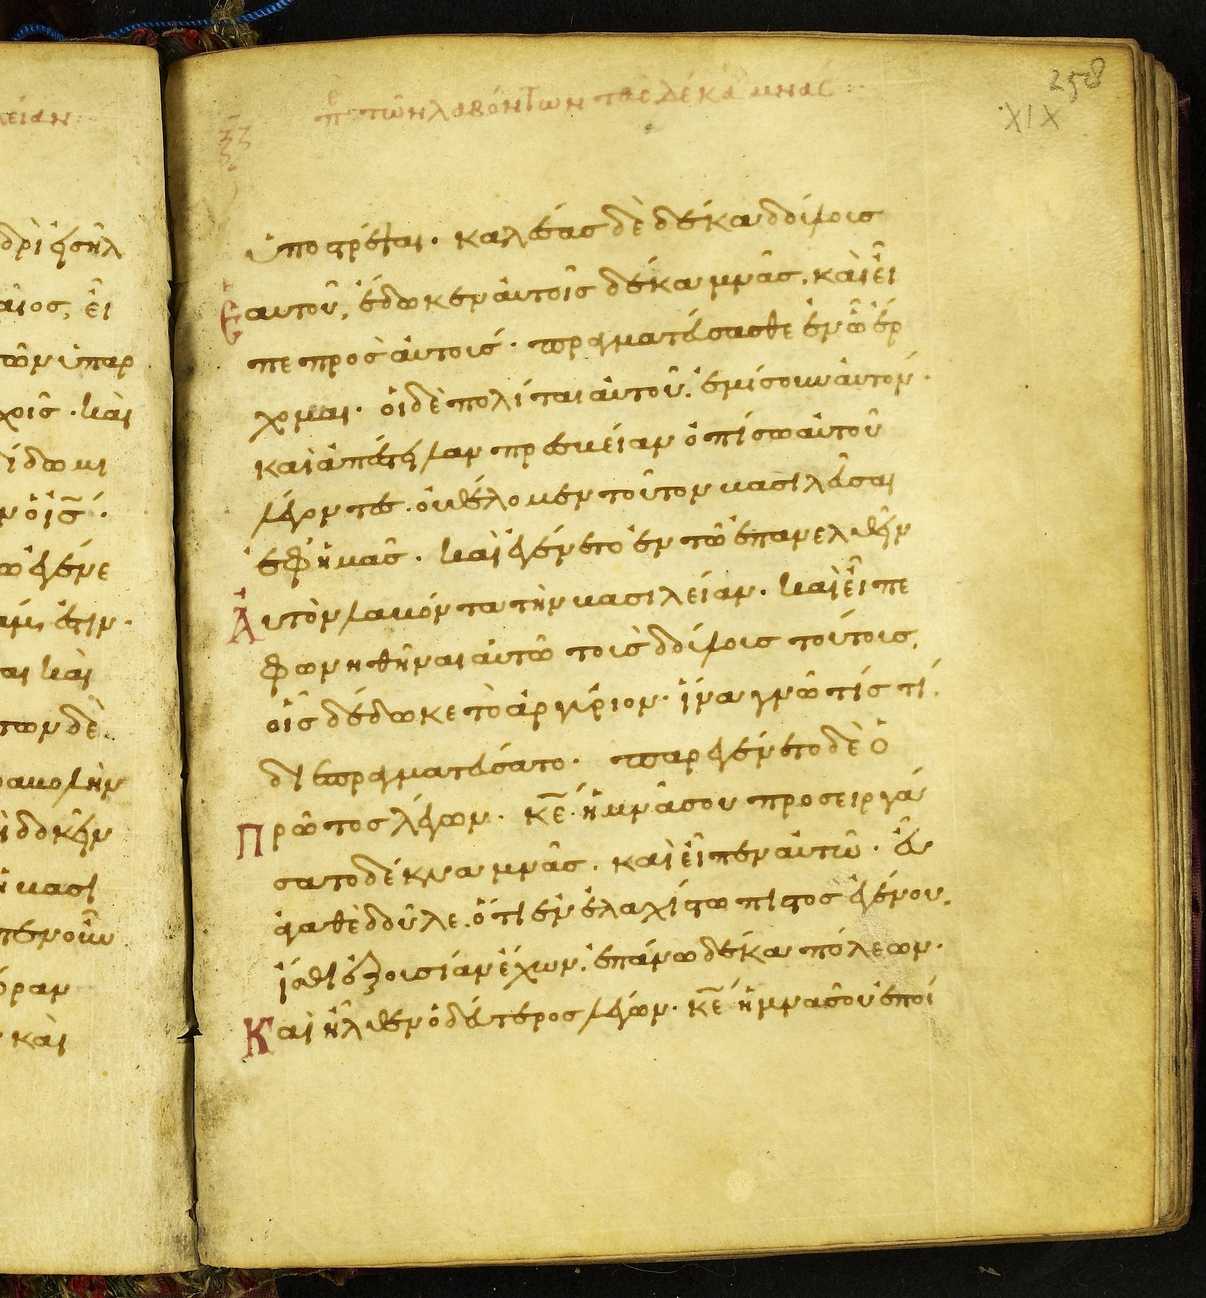 λείαν
258
XIX
ξζ
πε τῶν λαβόντων τὰς δέκα μνάς
δρὶ ἐσὴλ
αῖος, εἶ
τῶν ὑπαρ
χοῖς · καὶ
ίδωμι
ω ἐγένε
αι καὶ
των δὲ
ραβολὴν
ὶ δοκεῖν
ἡ βασι
πεν οὖν
όραν
καὶ
ὑποστρέψαι · καλέσας δὲ δέκα δούλους
ἑαυτοῦ, ἔδωκεν αὐτοῖς δέκα μνᾶς, καὶ εἶ
πε προς ἀυτούς · πραγματεύσασθε ἐν ᾧ ἔρ
χομαι · οἱ δὲ πολίται αὐτοῦ, ἐμίσουν ἀυτόν ·
καὶ ἀπέστειλαν πρεσβείαν ὀπίσω ἀυτοῦ
λέγοντες · ὀυ θέλομεν τοῦτον βασιλεῦσαι
ἐφ ἡμᾶς · καὶ ἐγένετο ἐν τῶ ἐπανελθεῖν
Ἀυτὸν λαβόντα τὴν βασιλείαν · καὶ εἶπε
φωνηθῆναι ἀυτῶ τοὺς δούλους τούτους,
οἷς δέδωκε τὸ ἀργύριον · ἵνα γνῶ τίς τί
διεπραγματεύσατο · παρεγένετο δὲ ὁ
Πρῶτος λέγων · κ̅ε̅ · ἡ μνᾶ σου προσειργά
σατο δέκα μνᾶς · καὶ εἶπεν ἀυτῶ · εὖ ἀ
γαθὲ δοῦλε · ὅτι ἐν ἐλαχίστω πιστος ἐγένου,
ἴσθι ἐξουσίαν ἔχων, ἐπάνω δέκα πόλεων ·
Καὶ ἦλθεν ὁ δεύτερος λέγων · κ̅ε̅ ἡ μνᾶ σου ἐποί